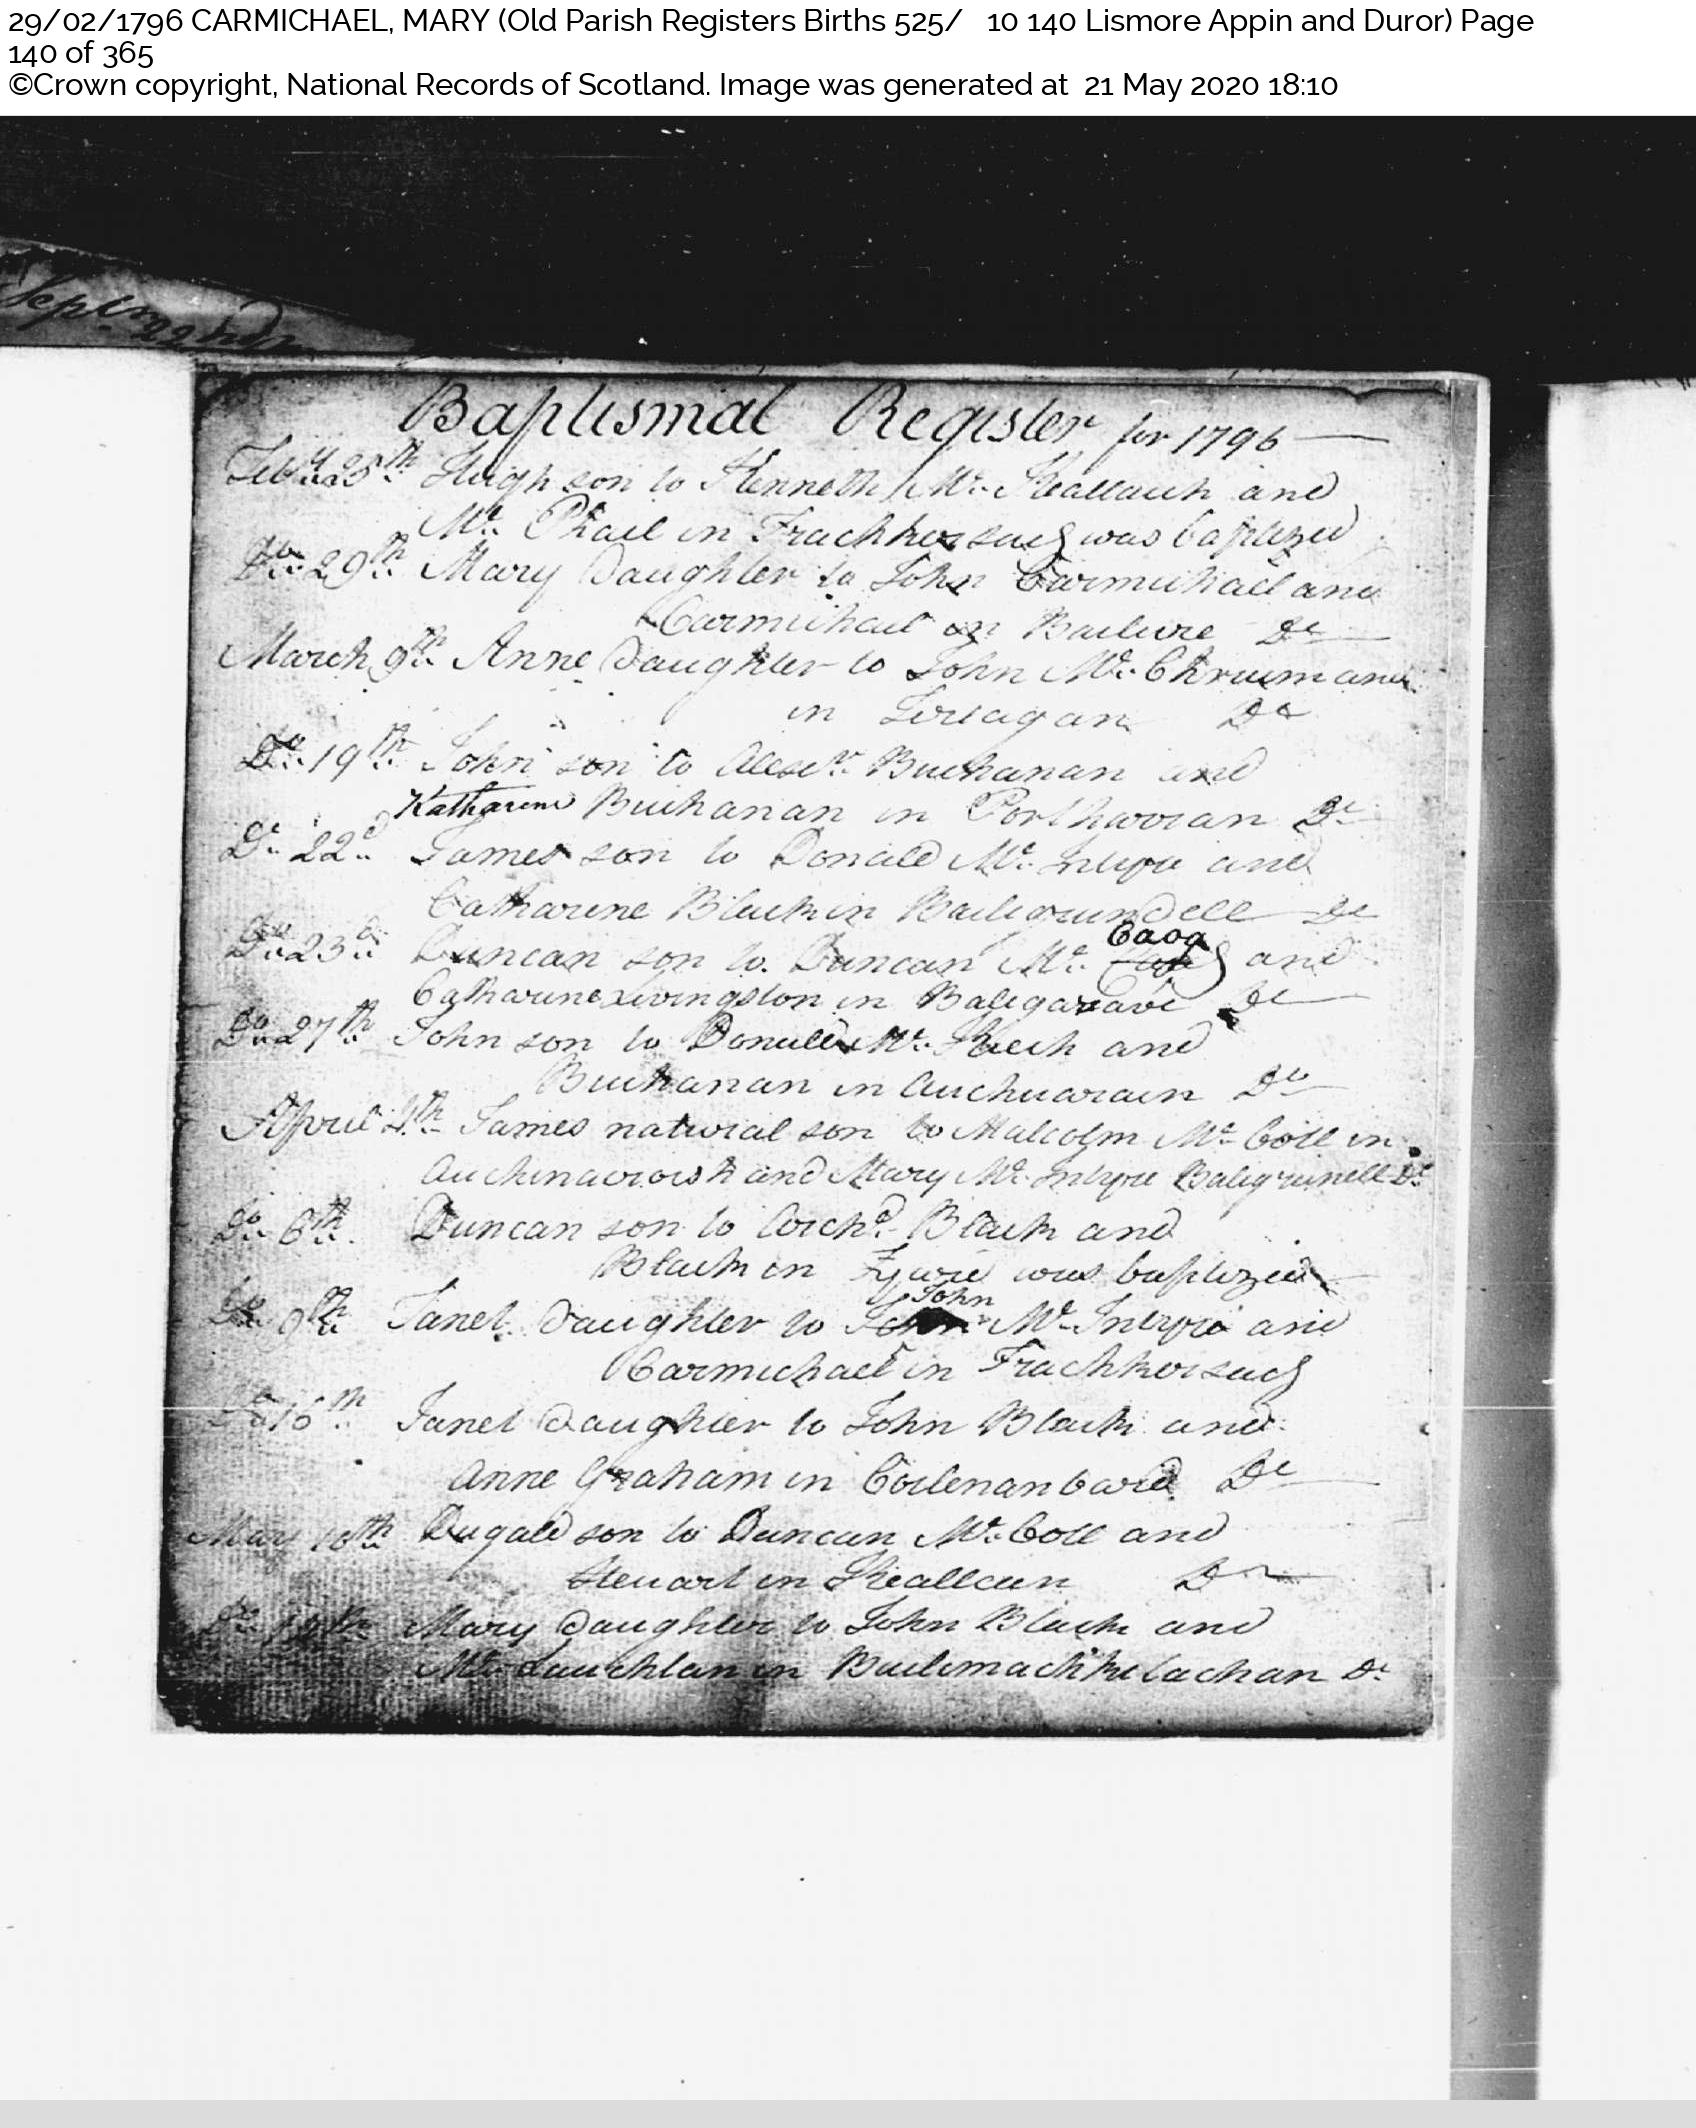 29/02/1796 CARMICHAEL, MARY (Old Parish Registers Births 525/ 10 140 Lismore Appin and Duror) Page
140 of 365
©Crown copyright, National Records of Scotland. Image was generated at 21 May 2020 18:10
Baptismal Register for 1796
25th Hugh son to Kenneth Mc. Keallaich and
Mc. Phail in Frachkersaig was baptized
Do. 29th Mary Daughter to John Carmichael and
Carmichael in Do
March 9th. Anne Daughter to John Mc. and
in Tirlagan Do
Do. 19th. John son to Alexr. Buchanan and
Katharine Buchanan in Portcharran Do
Do. 22d. James son to Donald Mc. Intyre and
Catharine Black in Baligrundell Do
Do. 23d. Duncan son to Duncan Mc. Caog and
Catharine Livingston in Do
Do. 27th John son to Donald Mc. Keich and
Buchanan in Auchuarain Do
April 4th James natural son to Malcolm Mc. Coll in
Auchinacroish and Mary Mc. Intyre Baligrunell Do
Do. 6th. Duncan son to Archd. Black and
Black in was baptized
John
Do 9th Janet Daughter to Mc. Intyre and
Carmichael in Frachkersaig
Do 16th Janet Daughter to John Black and
Anne Graham in Do
May 10th Dugald son to Duncan Mc. Coll and
Steuart in Do
Do Mary Daughter to John Black and
Mc. Lauchlan in Do